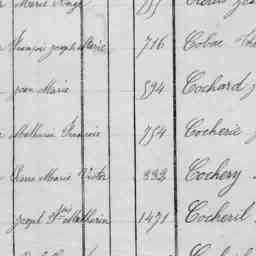 Marie Ange 755
François joseph Marie 716 Cobac
jean Marie 594 Cochard
Mathurin François 754 Cocherie
Pierre Marie Victor 222 Cochery
joseph Mathurin 1471 Cocheril